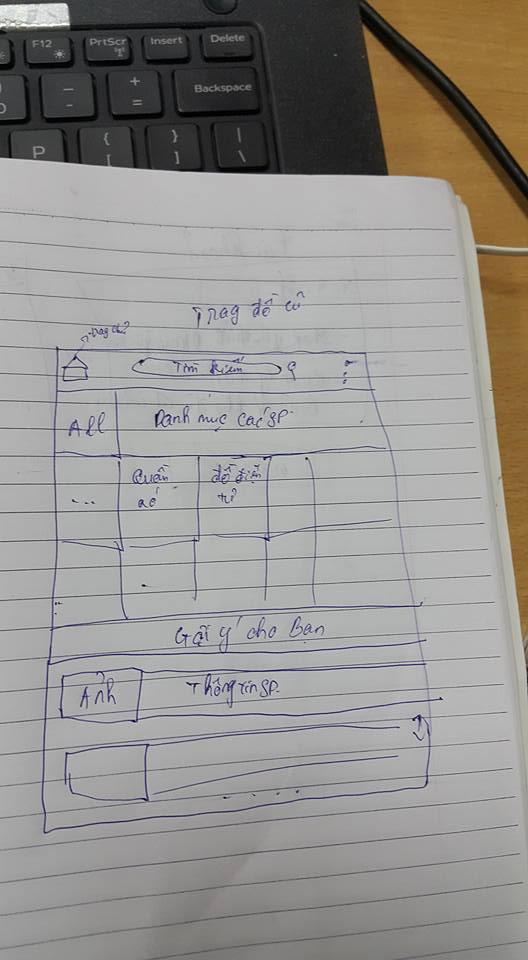 F12
PrtScr
Insert
Delete
-
+
=
Backspace
P
{
[
}
]
|
\
Trag đồ cũ
trag chủ
Tìm kiếm
All
Danh mục các SP
...
Quần
áo
đồ điện
tử
Gợi ý cho Bạn
Ảnh
Thông tin SP.
....